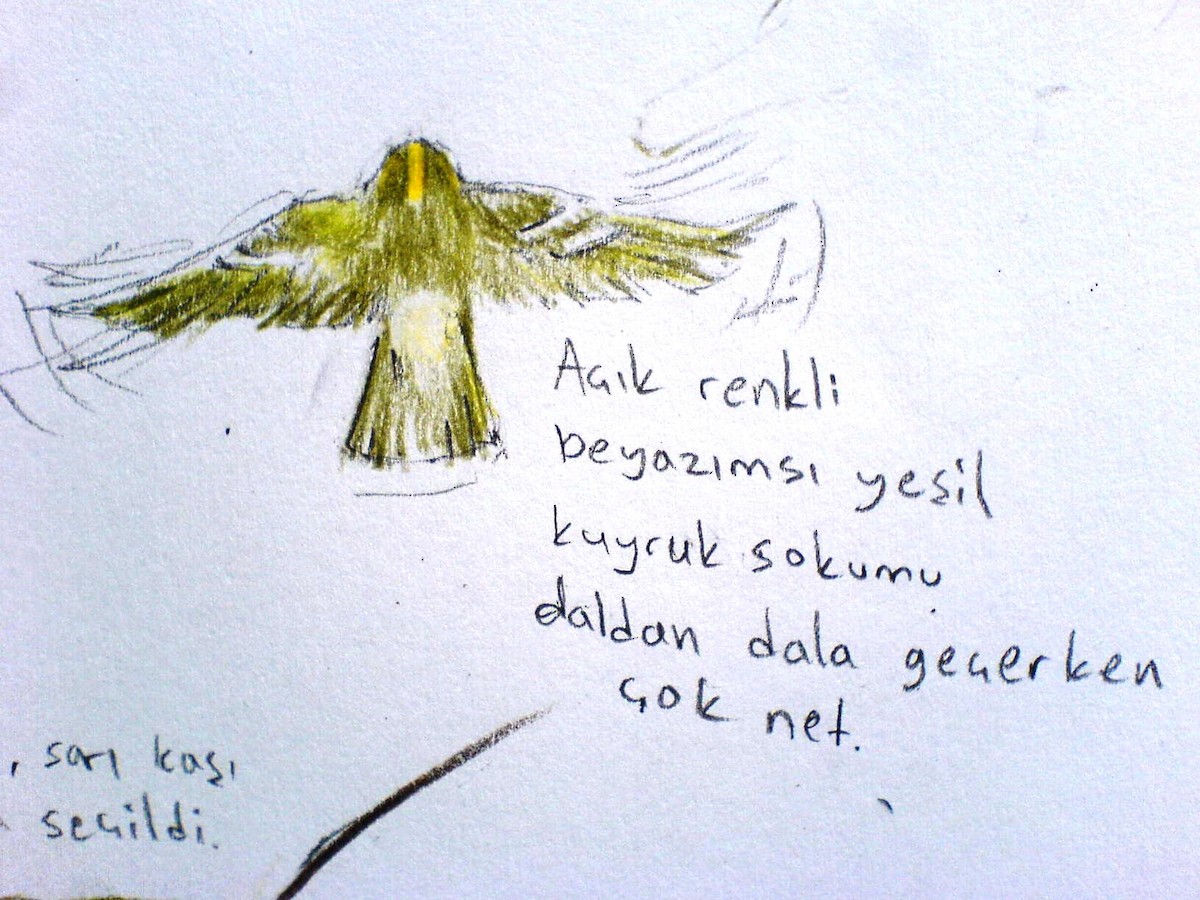 Açık renkli
beyazımsı yeşil
kuyruk sokumu
daldan dala geçerken
çok net.
, sarı kaşı
seçildi.